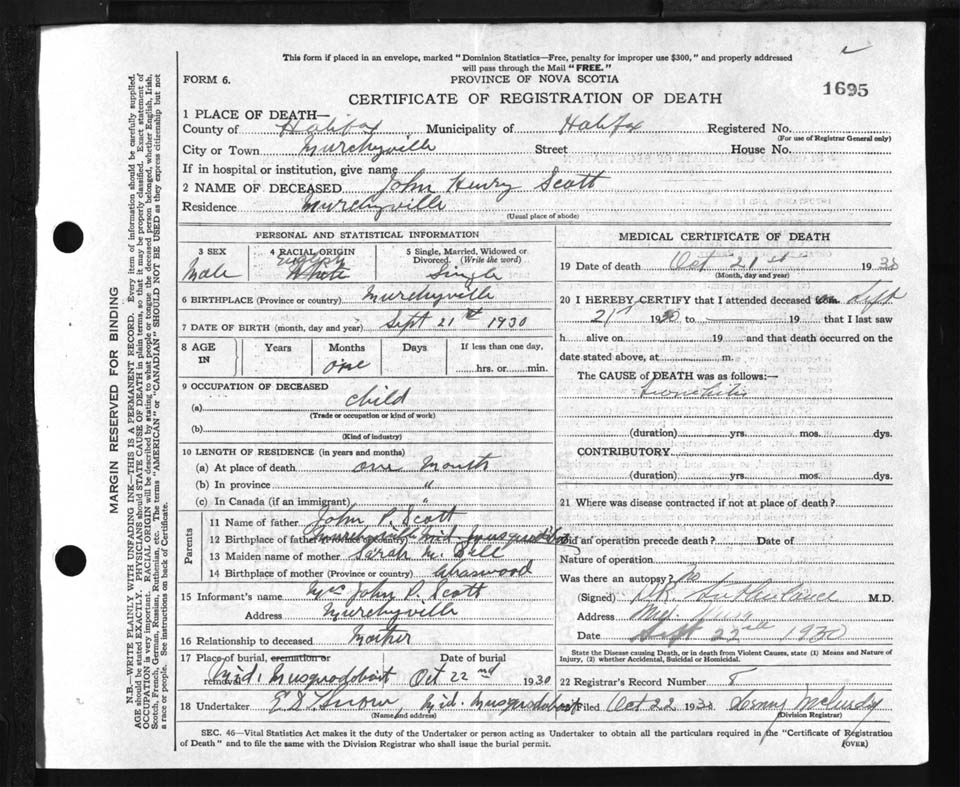 This form if placed in an envelope, marked "Dominion Statistics—Free, penalty for improper use $300," and properly addressed
will pass through the Mail "FREE."
FORM 6.
PROVINCE OF NOVA SCOTIA
1695
CERTIFICATE OF REGISTRATION OF DEATH
1 PLACE OF DEATH—
County of Halifax Municipality of Halifax Registered No.
(For use of Registrar General only)
City or Town Murchyville Street House No.
If in hospital or institution, give name
2 NAME OF DECEASED John Henry Scott
Residence Murchyville
(Usual place of abode)
PERSONAL AND STATISTICAL INFORMATION
3 SEX
Male
4 RACIAL ORIGIN
White
5 Single, Married, Widowed or
Divorced. (Write the word)
Single
6 BIRTHPLACE (Province or country) Murchyville
7 DATE OF BIRTH (month, day and year) Sept 21st 1930
8 AGE
IN
Years Months Days If less than one day,
one
hrs. or min.
9 OCCUPATION OF DECEASED
(a) child
(Trade or occupation or kind of work)
(b)
(Kind of industry)
10 LENGTH OF RESIDENCE (in years and months)
(a) At place of death one Month
(b) In province "
(c) In Canada (if an immigrant) "
Parents
11 Name of father John P. Scott
12 Birthplace of father Mid. Musquodoboit
13 Maiden name of mother Sarah M. Dill
14 Birthplace of mother (Province or country)
15 Informant's name Mrs John P. Scott
Address Murchyville
16 Relationship to deceased Mother
17 Place of burial, cremation or
removal
Date of burial
Mid. Musquodoboit Oct 22nd 1930
18 Undertaker Mid. Musquodoboit
(Name and address)
MEDICAL CERTIFICATE OF DEATH
19 Date of death Oct 21st 1930
(Month, day and year)
20 I HEREBY CERTIFY that I attended deceased Sept
21st 1930 to 19 that I last saw
h alive on 19 and that death occurred on the
date stated above, at m.
The CAUSE of DEATH was as follows:—
Bronchitis
(duration) yrs. mos. dys.
CONTRIBUTORY.
(duration) yrs. mos. dys.
21 Where was disease contracted if not at place of death?
Did an operation precede death? Date of
Nature of operation
Was there an autopsy? No
(Signed) Sutherland M.D.
Address
Date Sept 22nd 1930
State the Disease causing Death, or in death from Violent Causes, state (1) Means and Nature of
Injury, (2) whether Accidental, Suicidal or Homicidal.
22 Registrar's Record Number
Filed Oct 22 1930
(Division Registrar)
SEC. 46—Vital Statistics Act makes it the duty of the Undertaker or person acting as Undertaker to obtain all the particulars required in the "Certificate of Registration
of Death" and to file the same with the Division Registrar who shall issue the burial permit.
(OVER)
MARGIN RESERVED FOR BINDING
N.B.—WRITE PLAINLY WITH UNFADING INK—THIS IS A PERMANENT RECORD. Every item of information should be carefully supplied.
AGE should be stated EXACTLY. PHYSICIANS should STATE CAUSE OF DEATH in plain terms, so that it may be properly classified. Exact statement of
OCCUPATION is very important. RACIAL ORIGIN will be described by stating to what people or tongue the deceased person belonged, whether English, Irish,
Scotch, French, German, Russian, Ruthenian, etc. The terms "AMERICAN" or "CANADIAN" SHOULD NOT BE USED as they express citizenship but not
a race or people. See instructions on back of Certificate.